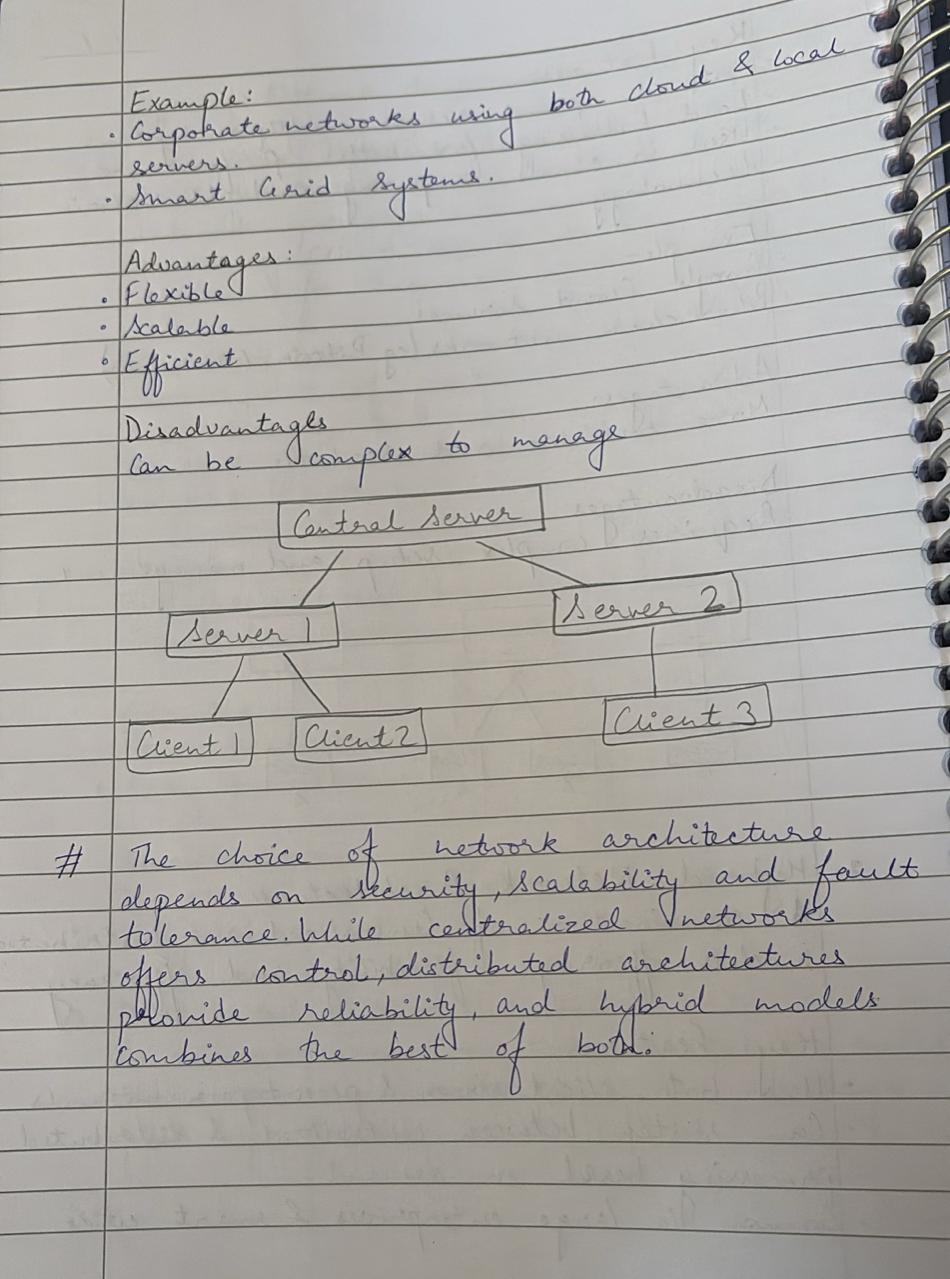 Example:
• Corporate networks using both cloud & local
servers.
• Smart Grid Systems.
Advantages:
• Flexible
• Scalable
• Efficient
Disadvantages
Can be complex to manage
Central Server
Server 1
Server 2
Client 1
Client 2
Client 3
# The choice of network architecture
depends on security, scalability and fault
tolerance. While centralized networks
offers control, distributed architectures
provide reliability, and hybrid models
combines the best of both.